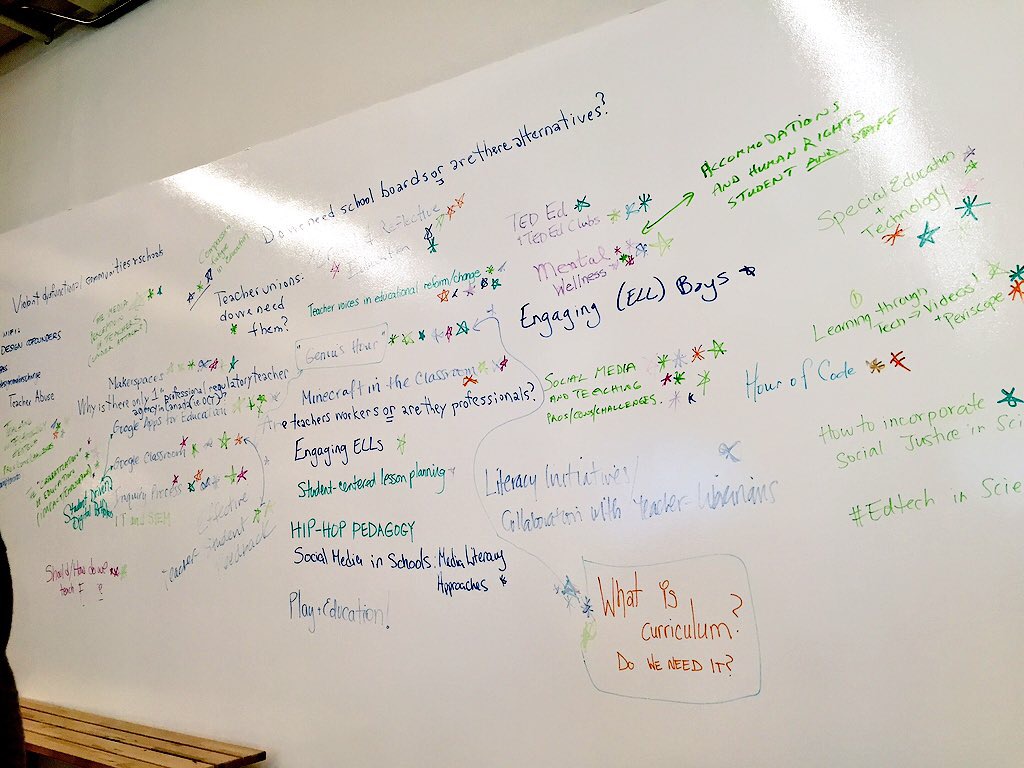 Do we need school boards or are there alternatives?
Violent dysfunctional communities + schools
DESIGN COFOUNDERS
Teacher Abuse
THE MEDIA
Teacher unions:
do we need
them?
Reflective
Teacher voices in educational reform/change
"Genius Hour"
Makerspaces
Why is there only 1 professional regulatory teacher
agency in Canada (OCT)?
Google Apps for Education
Google Classroom
Inquiry Process
IT and SEM
Student Driven
Digital Portfolios
Should/How do we
teach
Effective
Teacher Student
Feedback
Minecraft in the Classroom
Are teachers workers or are they professionals?
Engaging ELLs
Student-centered lesson planning
HIP-HOP PEDAGOGY
Social Media in Schools: Media Literacy
Approaches
Play + Education!
TED Ed
+ TED Ed Clubs
Mental
Wellness
Engaging (ELL) Boys
ACCOMMODATIONS
AND HUMAN RIGHTS
STUDENT AND STAFF
SOCIAL MEDIA
AND TEACHING
PROS/CONS/CHALLENGES.
Literacy Initiatives/
Collaboration with Teacher-Librarians
What is
curriculum?
DO WE NEED IT?
Special Education
+
Technology
Learning through
Tech → Videos!
+ Periscope
Hour of Code
How to incorporate
Social Justice in Sci
#Edtech in Scie